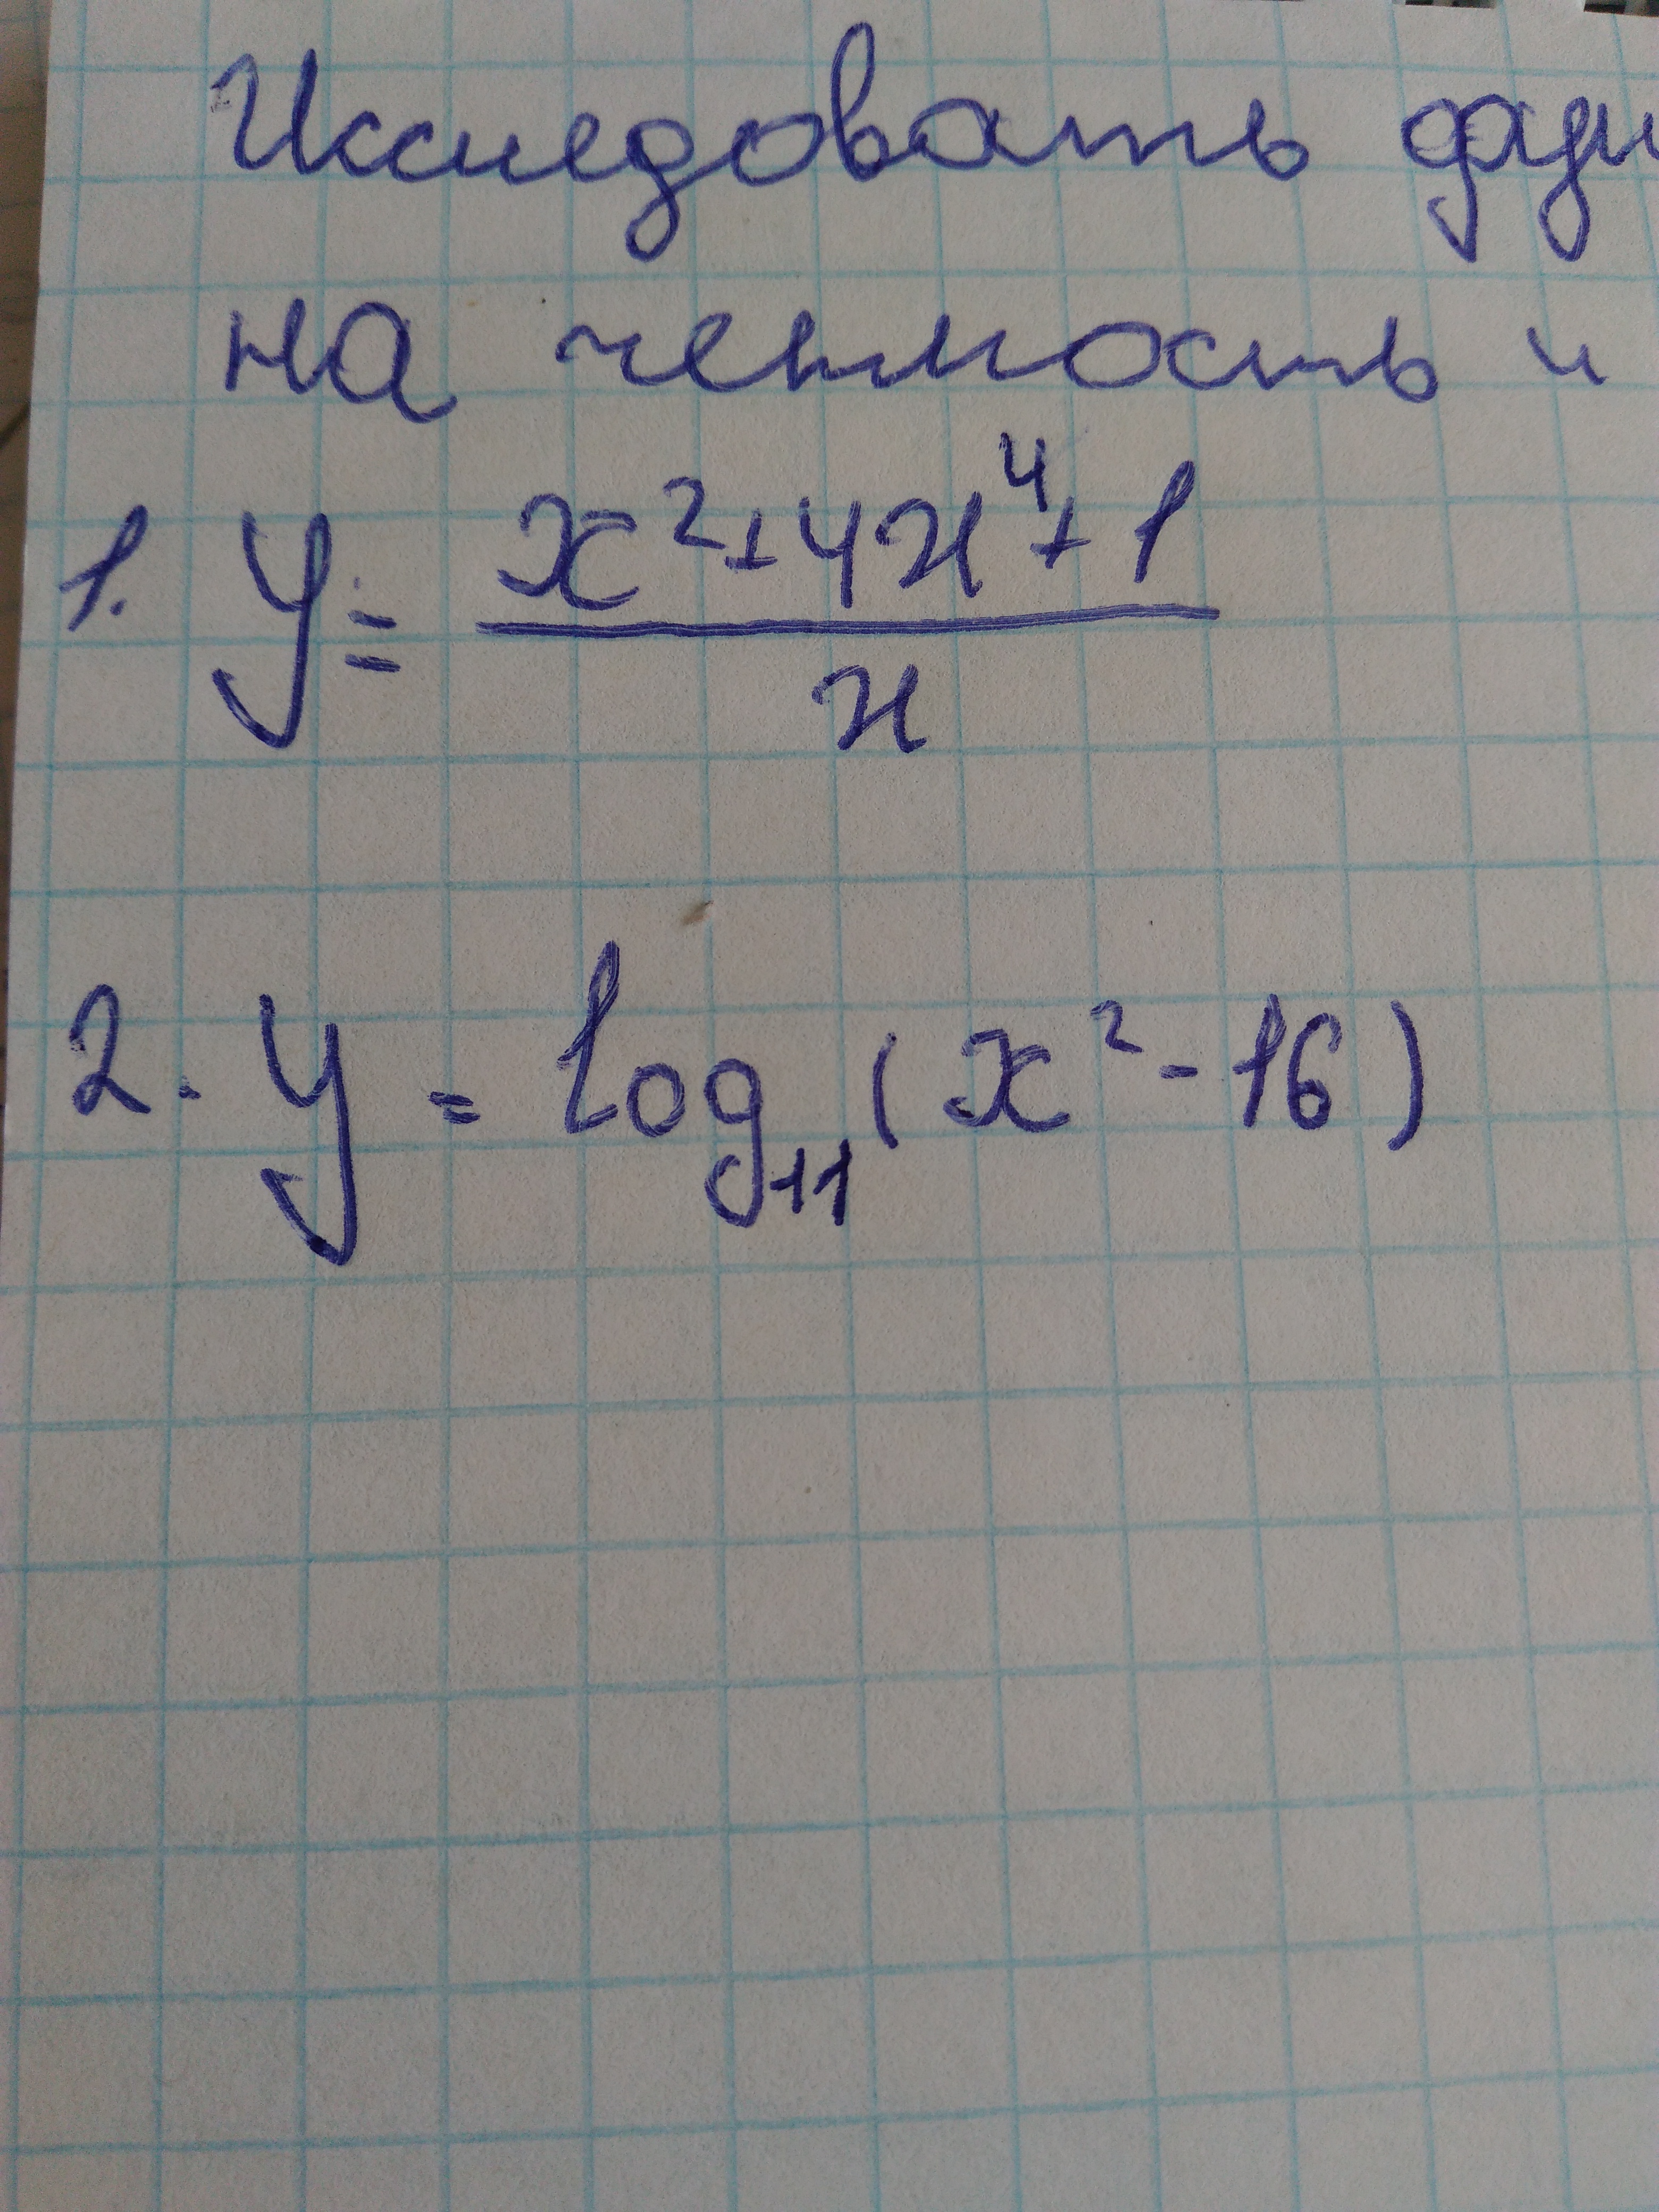 Исследовать
на четность и
1. y = (x² + 4x⁴ + 1) / x
2. y = log₁₁ (x² - 16)